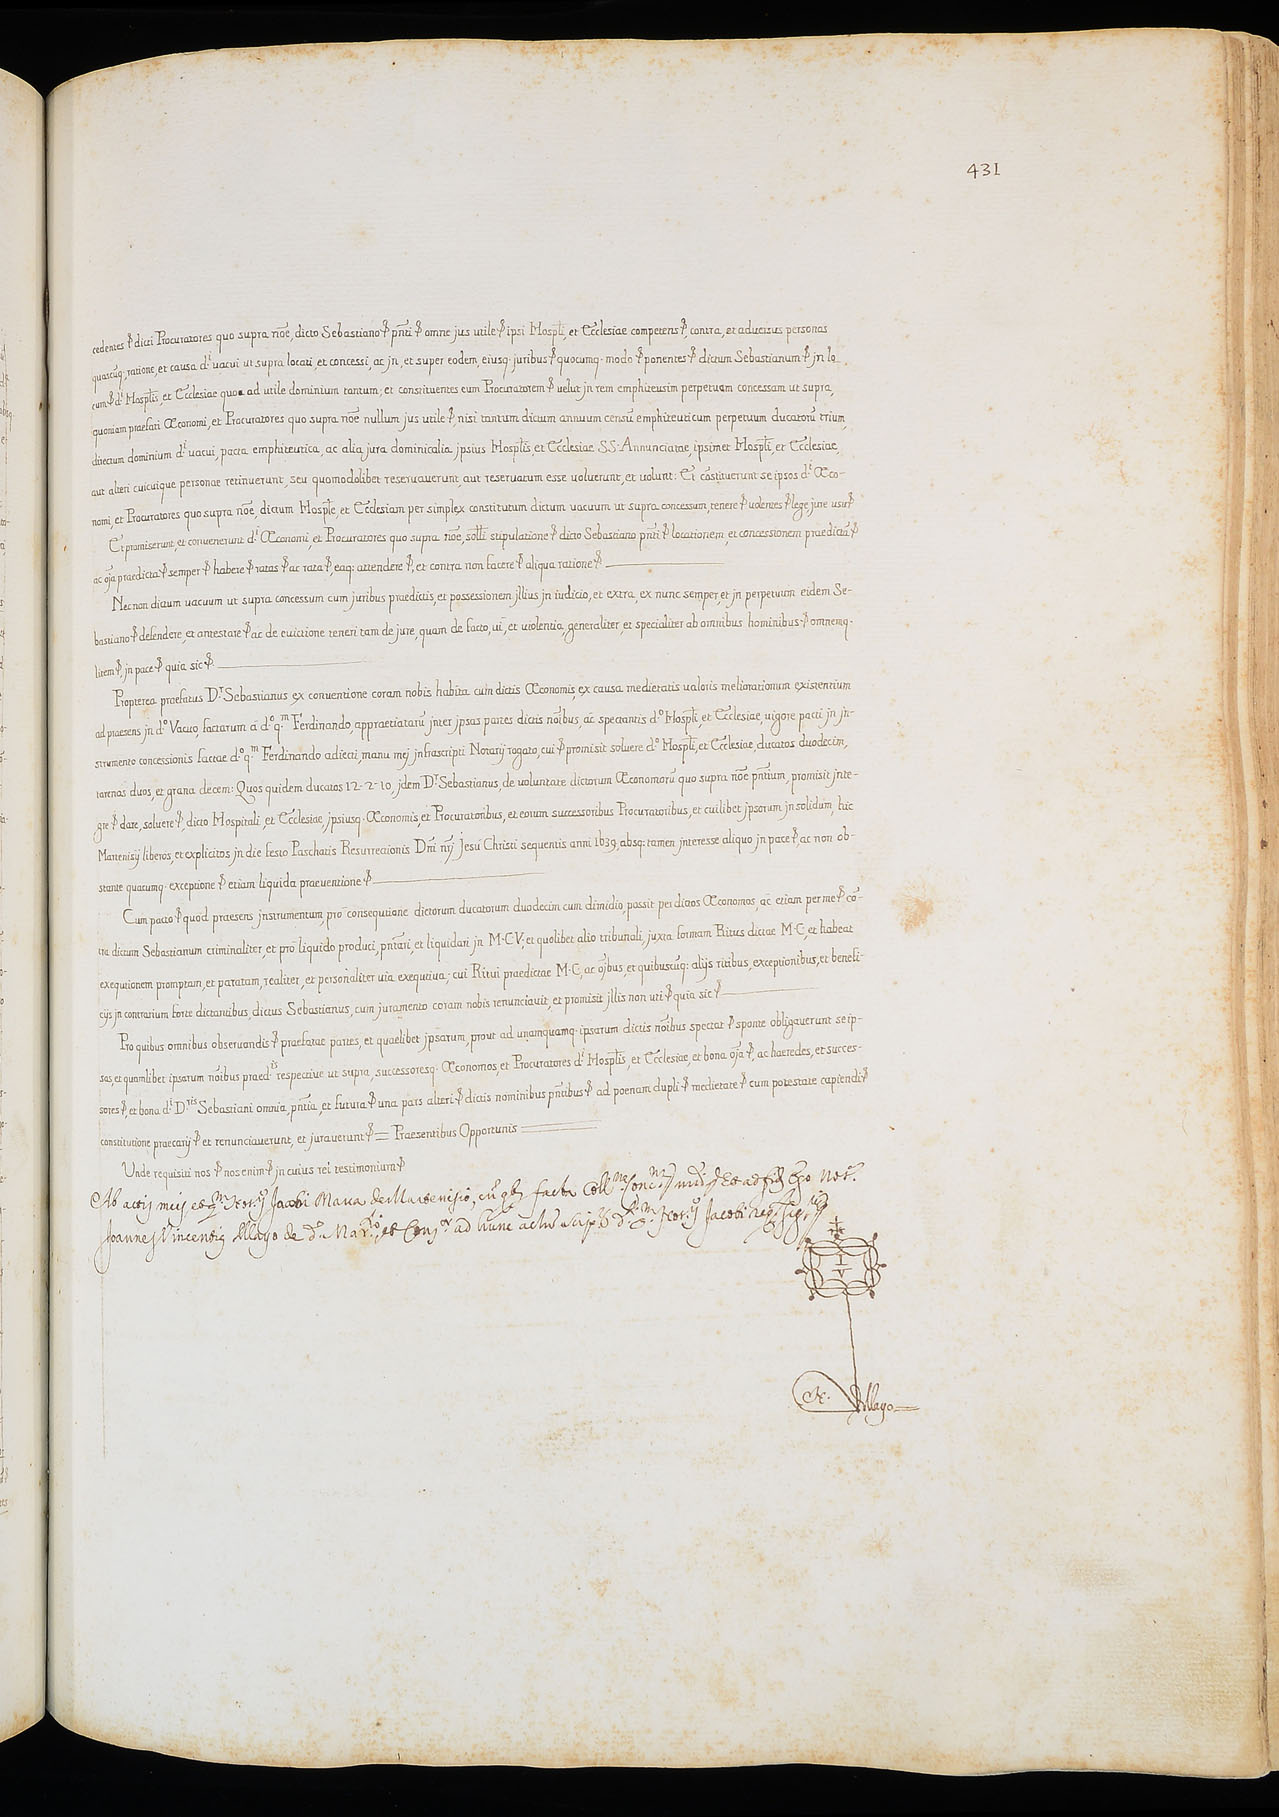 431
cedentes ꝑ dicti Procuratores quo supra nõe, dicto Sebastiano ꝑ pñti ꝑ omne jus utile ꝑ ipsi Hospłi, et Ecclesiae competens ꝑ contra, et aduersus personas
quascũq;, ratione, et causa dⁱ uacui ut supra locati, et concessi, ac jn, et super eodem, eiusq; juribus ꝑ quocumq; modo ꝑ ponentes ꝑ dictum Sebastianum ꝑ jn lo
cum ꝑ dⁱ Hosplis, et Ecclesiae quoa ad utile dominium tantum; et constituentes eum Procuratorem ꝑ uelut jn rem emphiteusim perpetuam concessam ut supra,
quoniam praefati Œconomi, et Procuratores quo supra nõe nullum jus utile ꝑ, nisi tantum dictum annuum censũ emphiteuticum perpetuum ducatorũ trium,
directum dominium dⁱ uacui, pacta emphiteutica, ac alia jura dominicalia jpsius Hosplis et Ecclesiae SS. Annunciatae, ipsimet Hospłi, et Ecclesiae,
aut alteri cuicuique personae retinuerunt, seu quomodolibet reseruauerunt, aut reseruatum esse uoluerunt, et uolunt: Et cõstituerunt se ipsos dⁱ Œco-
nomi, et Procuratores quo supra nõe, dictum Hosple, et Ecclesiam per simplex constitutum dictum uacuum ut supra concessum, tenere ꝑ uolentes ꝑ lege, jure usu ꝑ
Et promiserunt, et conuenerunt dⁱ Œconomi, et Procuratores quo supra nõe, solłi stipulatione ꝑ dicto Sebastiano pñti ꝑ locationem, et concessionem praedictã ꝑ
ac oĩa praedicta ꝑ semper ꝑ habere ꝑ ratas ꝑ ac rata ꝑ, eaq; attendere ꝑ, et contra non facere ꝑ aliqua ratione ꝑ
Nec non dictum uacuum ut supra concessum cum juribus praedictis, et possessionem jllius jn iudicio, et extra, ex nunc semper, et jn perpetuum eidem Se-
bastiano ꝑ defendere, et antestare ꝑ ac de euictione teneri tam de jure, quam de facto, ui, et uiolentia, generaliter, et specialiter ab omnibus hominibus ꝑ omnemq;
litem ꝑ, jn pace ꝑ quia sic ꝑ
Propterea praefatus Dʳ Sebastianus ex conuentione coram nobis habita cum dictis Œconomis, ex causa medietatis ualoris meliorationum existentium
ad praesens jn dᵒ Vacuo, factarum à dᵒ qᵐ Ferdinando, appraetiatarũ jnter jpsas partes dictis nõibus, ac spectantis dᵒ Hospłi, et Ecclesiae, uigore pacti jn jn-
strumento concessionis factae dᵒ qᵐ Ferdinando adiecti, manu mej jnfrascripti Notarij rogato, cui ꝑ promisit soluere dᵒ Hospłi, et Ecclesiae, ducatos duodecim,
tarenos duos, et grana decem: Quos quidem ducatos 12-2-10, jdem Dʳ Sebastianus, de uoluntate dictorum Œconomorũ quo supra nõe pñtium, promisit jnte-
gre ꝑ dare, soluere ꝑ, dicto Hospitali, et Ecclesiae, jpsiusq; Œconomis, et Procuratoribus, et eorum successoribus Procuratoribus, et cuilibet jpsorum jn solidum, hic
Martenisij liberos, et explicitos jn die festo Paschatis Resurrectionis Dñi ñrj Jesù Christi sequentis anni 1639, absq; tamen jnteresse aliquo jn pace ꝑ, ac non ob-
stante quacumq; exceptione ꝑ etiam liquida praeuentione ꝑ
Cum pacto ꝑ quòd praesens jnstrumentum, pro consequtione dictorum ducatorum duodecim cum dimidio, possit per dictos Œconomos, ac etiam per me ꝑ cõ-
tra dictum Sebastianum criminaliter, et prò liquido produci, pñtari, et liquidari jn M.C.V, et quolibet alio tribunali, juxta formam Ritus dictae M.C, et habeat
exequtionem promptam, et paratam, realiter, et personaliter uia exequtiua; cui Ritui praedictae M.C, ac oĩbus, et quibuscũq; alijs ritibus, exceptionibus, et benefi-
cijs jn contrarium forte dictantibus, dictus Sebastianus, cum juramento coram nobis renunciauit, et promisit jllis non uti ꝑ quia sic ꝑ
Pro quibus omnibus obseruandis ꝑ praefatae partes, et quaelibet jpsarum, prout ad unamquamq; ipsarum dictis nõibus spectat ꝑ sponte obligauerunt se ip-
sas, et quamlibet ipsarum nõibus praedᵗⁱˢ respectiue ut supra, successoresq; Œconomos, et Procuratores dⁱ Hosplis, et Ecclesiae, et bona oĩa ꝑ, ac haeredes, et succes-
sores ꝑ, et bona dⁱ Dʳⁱˢ Sebastiani omnia, pñtia, et futura ꝑ una pars alteri ꝑ dictis nominibus pñtibus ꝑ ad poenam dupli ꝑ medietate ꝑ cum potestate capiendi ꝑ
constitutione praecarij ꝑ et renunciauerunt, et jurauerunt ꝑ = Praesentibus Opportunis
Unde requisiti nos ꝑ nos enim ꝑ jn cuius rei testimonium ꝑ
Ab actis meis et qᵐ Notʳⁱʲ Jacobi Maria de Martenisio, facta et ad fidẽ Ego Notʳ
Joannes Vincentius Allago de dᵒ ad hunc Jacobi
I
V
Allago